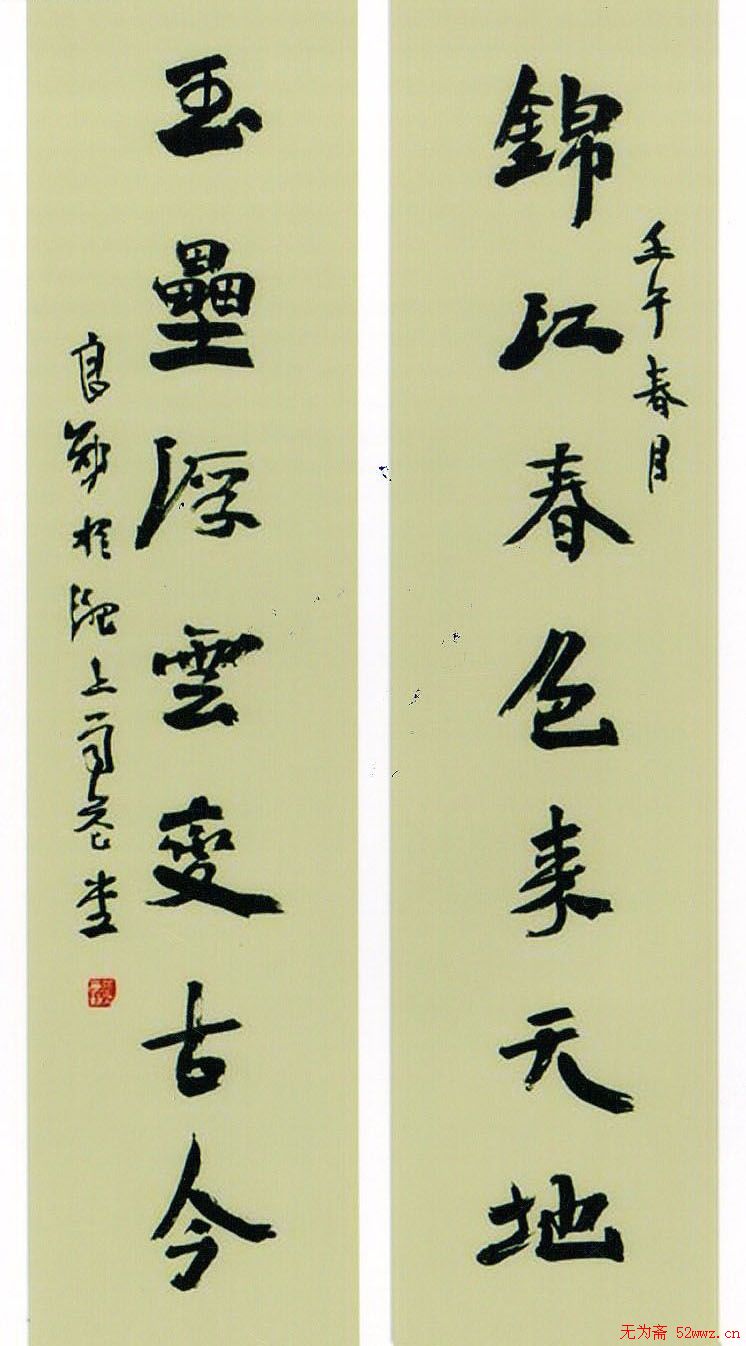 錦江春色来天地
壬午春月
玉壘浮雲變古今
於 上 堂
无为斋 52wwz.cn